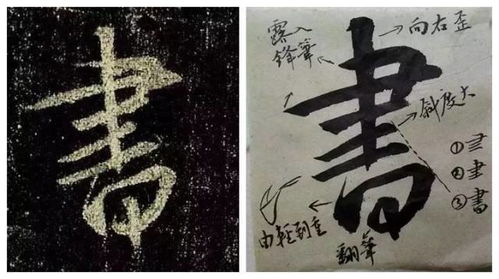 書
書
露入
鋒筆
→向右歪
→斜度大
①
②聿
③書
由輕到重
翻筆